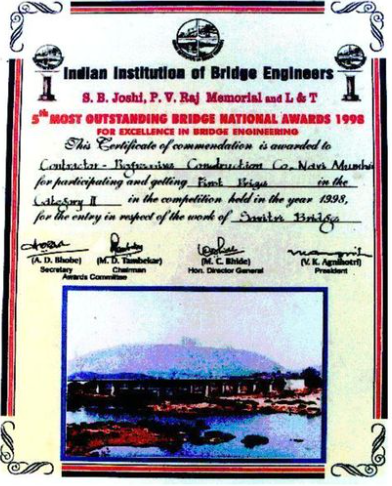 Indian Institution of Bridge Engineers
S. B. Joshi, P. V. Raj Memorial and L & T
5th MOST OUTSTANDING BRIDGE NATIONAL AWARDS 1998
FOR EXCELLENCE IN BRIDGE ENGINEERING
This Certificate of commendation is awarded to
Contractor - Construction Co. Navi Mumbai
for participating and getting First in the
Category II in the competition held in the year 1998,
for the entry in respect of the work of Savitri Bridge
(A. D. Bhobe) (M. D. Tambekar) (M. C. Bhide) (V. K. Agnihotri)
Secretary Chairman Hon. Director General President
Awards Committee